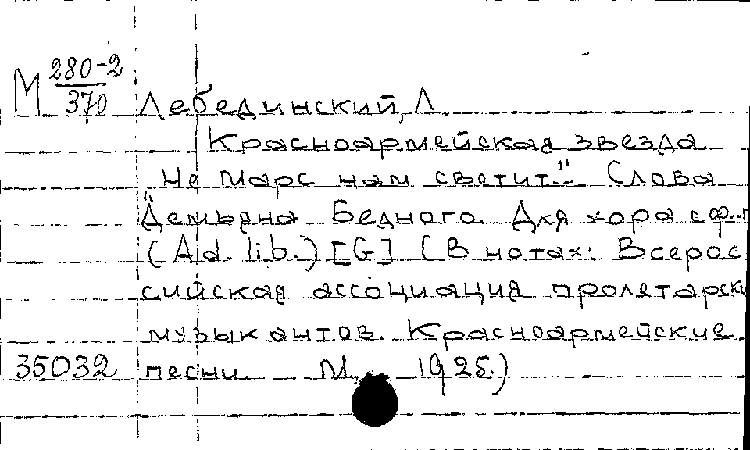 М 280-2
370
Лебединский, Л.
Красноармейская звезда
"Не Марс нам светит..." Слова
Демьяна Бедного. Для хора с ф.-п
(Ad. lib.) [G] (В нотах: Всерос
сийская ассоциация пролетарски
музыкантов. Красноармейские
35032 песни. М., 1925.)